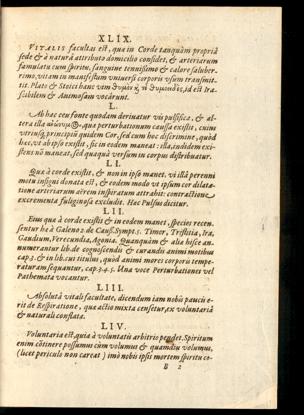 XLIX.
VITALIS facultas est, qua in Corde tanquàm propriâ
sede & à naturâ attributo domicilio consides, & arteriarum
famulatu cum spiritu, sanguine tenuissimo & calore saluber-
rimo, vitam in manifestum vniuersi corporis vsum transmit-
tit. Plato & Stoici hanc vim θυμὸν ἢ τὸ θυμοειδὲς, id est Ira-
scibilem & Animosam vocârunt.
L.
Ab hac ceu fonte quodam deriuatur vis pulsifica, & al-
tera illa quæ perturbationum caussa existit, cuius
vtriusq; principiũ quidem Cor, sed cum hoc discrimine, quòd
hæc, vt ab ipso existit, sic in eodem maneat: illa, itidem exi-
stens nõ maneat, sed quaquà versum in corpus distribuatur.
LI.
Quæ à corde existit, & non in ipso manet, vi illâ perenni
motu insigni donata est, & eodem modo vt ipsum cor dilata-
tione arteriarum aërem inspiratum attrahit: contractione
excrementa fuliginosa excludit. Hæc Pulsus dicitur.
LII.
Eius quæ à corde existit & in eodem manet, species recen-
sentur hæ à Galeno 2. de Causs. Sympt. 5. Timor, Tristitia, Ira,
Gaudium, Verecundia, Agonia. Quanquàm & alia hisce an-
numerantur lib. de cognoscendis & curandis animi motibus
cap. 3. & in lib. cui titulus, quòd animi mores corporis tempe-
raturam sequantur, cap. 3. 4. 5. Vna voce Perturbationes vel
Pathemata vocantur.
LIII.
Absolutâ vitali facultate, dicendum iam nobis paucis e-
rit de Respiratione, quæ actio mixta censetur, ex voluntariâ
& naturali conflata.
LIV.
Voluntaria est, quia à voluntatis arbitrio pendet. Spiritum
enim cõtinere possumus cùm volumus & quamdiu volumus,
(licet periculo non careat) imò nobis ipsis mortem spiritu co-
B 2